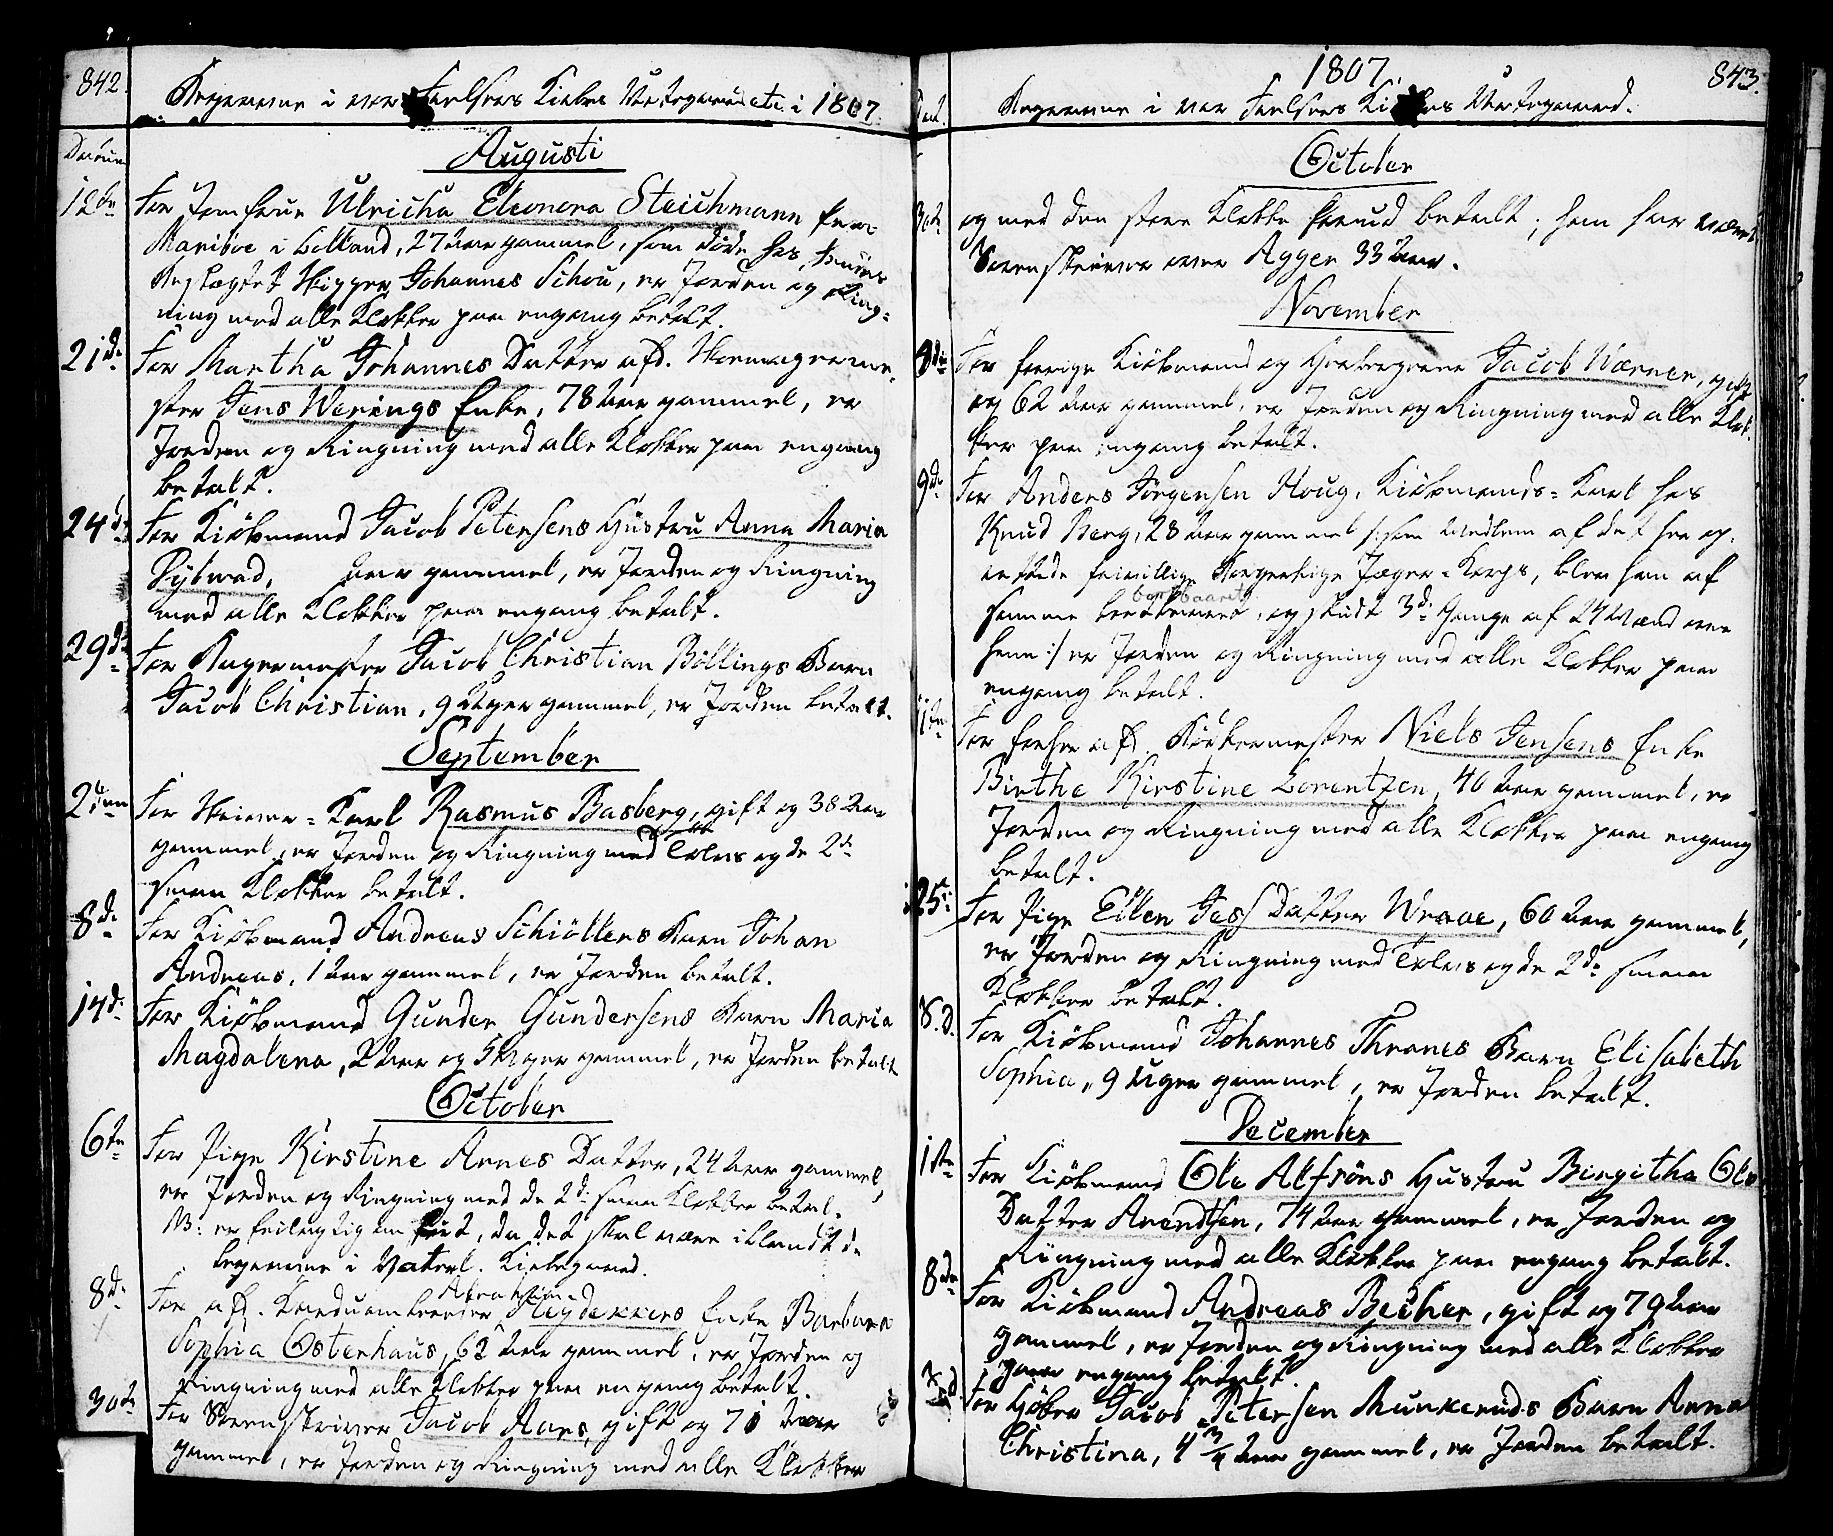 842.
Begravne i vor Frelsers Kirke Urtegaard etc. i 1807.
Datum
Augusti
12te For Jomfrue Ulricha Eleonora Steichmann fra
Mariboe i Lolland, 27 Aar gammel, som döde hos
Skipper Johannes Schou, er Jorden og Ring-
ning med alle Klokker paa engang betalt.
21de For Martha Johannes Datter afd.
ster Jens Werings Enke, 78 Aar gammel, er
Jorden og Ringning med alle Klokker paa engang
betalt.
24de For Kiöbmand Jacob Petersens Hustru Anna Maria
Dybwad, Aar gammel, er Jorden og Ringning
med alle Klokker paa engang betalt.
29de For Bagermester Jacob Christian Böllings Barn
Jacob Christian, 9 Uger gammel, er Jorden betalt.
September
2den For Karl Rasmus Basberg, gift og 38 Aar
gammel, er Jorden og Ringning med Tolvs og de 2de
smaa Klokker betalt.
8de For Kiöbmand Andreas Schiöllers Barn Johan
Andreas, 1 Aar gammel, er Jorden betalt.
14de For Kiöbmand Gunder Gundersens Barn Maria
Magdalena, 2 Aar og 5 Uger gammel, er Jorden betalt
October
6te For Pige Kirstine Arnes Datter, 24 Aar gammel,
er Jorden og Ringning med de 2de smaa Klokker betal.
NB: er feilagtig her fört, da det skal være iblandt de
begravne i Vaterl. Kirkegaard.
8de For afd. Abraham
Heydekkers Enke Barbara
Sophia Osterhaus, 62 Aar gammel, er Jorden og
Ringning med alle Klokker paa engang betalt.
30te For Sorenskriver Jacob Aars, gift og 71 Aar
gammel, er Jorden og Ringning med alle Klokker
1807.
843.
Dat. Begravne i vor Frelsers Kirkes Urtegaard.
October
30te og med den store Klokke forud betalt; han har været
Sorenskriver over Agger 33 Aar.
November
8de For forrige Kiöbmand og Jacob Wærner, gift
og 62 Aar gammel, er Jorden og Ringning med alle Klok-
ker paa engang betalt.
9de For Anders Jörgensen Houg, Kiöbmands-Karl hos
Knud Berg, 28 Aar gammel /: som Medlem af det her op-
rettede frivillige Borgerlige Jæger-Korps, blev han af
bortbaaret
samme og skudt 3de Gange af 24 Mænd over
ham :/ er Jorden og Ringning med alle Klokker paa
engang betalt.
11te For afd. Niels Jensens Enke
Birthe Kirstine Lorentzen, 40 Aar gammel, er
Jorden og Ringning med alle Klokker paa engang
betalt.
25de For Pige Ellen Jess Datter Wraae, 60 Aar gammel,
er Jorden og Ringning med Tolvs og de 2de smaa
Klokker betalt.
S. d. For Kiöbmand Johannes Thranes Barn Elisabeth
Sophia, 9 Uger gammel, er Jorden betalt.
December
1ste For Kiöbmand Ole Alfsöns Hustru Birgitha Ole
Datter Arendtsen, 74 Aar gammel, er Jorden og
Ringning med alle Klokker paa engang betalt.
8de For Kiöbmand Andreas Becher, gift og 79 Aar
gammel, er Jorden og Ringning med alle Klokker
paa engang betalt.
For Jacob Petersen Munkeruds Barn Anna
Christina, 4 3/4 Aar gammel, er Jorden betalt.